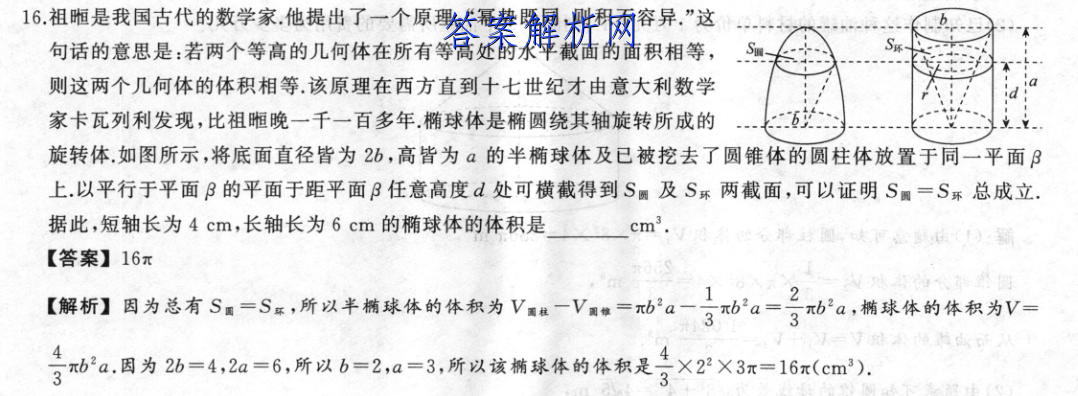 16.祖暅是我国古代的数学家.他提出了一个原理“幂势既同,则积不容异.”这
答案解析网
句话的意思是:若两个等高的几何体在所有等高处的水平截面的面积相等,
则这两个几何体的体积相等.该原理在西方直到十七世纪才由意大利数学
家卡瓦列利发现,比祖暅晚一千一百多年.椭球体是椭圆绕其轴旋转所成的
S圆
b
S环
b
r
d
a
旋转体.如图所示,将底面直径皆为 2b,高皆为 a 的半椭球体及已被挖去了圆锥体的圆柱体放置于同一平面 β
上.以平行于平面 β 的平面于距平面 β 任意高度 d 处可横截得到 S圆 及 S环 两截面,可以证明 S圆=S环 总成立.
据此,短轴长为 4 cm,长轴长为 6 cm 的椭球体的体积是________cm³.
【答案】16π
【解析】因为总有 S圆=S环,所以半椭球体的体积为 V圆柱-V圆锥=πb²a-1/3πb²a=2/3πb²a,椭球体的体积为V=
4/3πb²a.因为 2b=4,2a=6,所以 b=2,a=3,所以该椭球体的体积是4/3×2²×3π=16π(cm³).